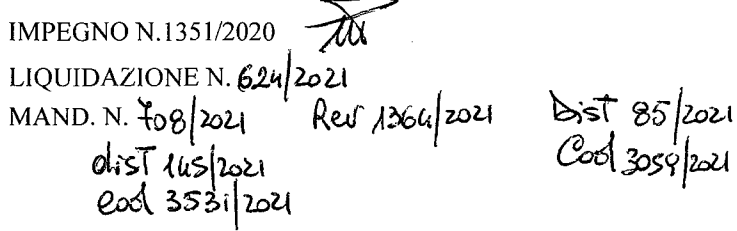 IMPEGNO N.1351/2020
LIQUIDAZIONE N. 624/2021
MAND. N. 708/2021 Rev 1364/2021 Dist 85/2021
dist 145/2021 Cod 3059/2021
cod 3531/2021